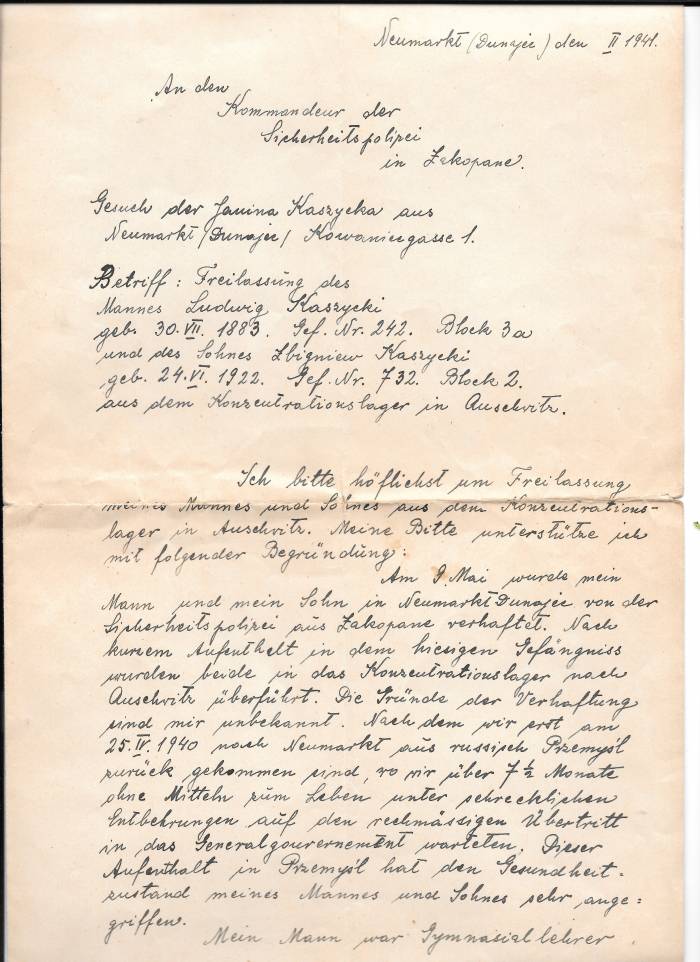 Neumarkt (Dunajec) den II 1941.
An den
Kommandeur der
Sicherheitspolizei
in Zakopane.
Gesuch der Janina Kaszycka aus
Neumarkt/Dunajec/ Kowaniecgasse 1.
Betriff: Freilassung des
Mannes Ludwig Kaszycki
geb. 30.VII. 1883. Gef. Nr. 242. Block 3a
und des Sohnes Zbigniew Kaszycki
geb. 24.VI. 1922. Gef. Nr. 732. Block 2.
aus dem Konzentrationslager in Auschwitz.
Ich bitte höflichst um Freilassung
meines Mannes und Sohnes aus dem Konzentrations-
lager in Auschwitz. Meine Bitte unterstütze ich
mit folgender Begründung:
Am 9. Mai wurde mein
Mann und mein Sohn in Neumarkt Dunajec von der
Sicherheitspolizei aus Zakopane verhaftet. Nach
kurzem Aufenthelt in dem hiesigen Gefängniss
wurden beide in das Konzentrationslager nach
Auschwitz überführt. Die Gründe der Verhaftung
sind mir unbekannt. Nach dem wir erst am
25.IV. 1940 nach Neumarkt aus russisch Przemyśl
zurück gekommen sind, wo wir über 7 ½ Monate
ohne Mitteln zum Leben unter schrecklichen
Entbehrungen auf den rechmässigen Übertritt
in das Generalgouvernement warteten. Dieser
Aufenthalt in Przemyśl hat den Gesundheit-
zustand meines Mannes und Sohnes sehr ange=
griffen.
Mein Mann war Gymnasiallehrer